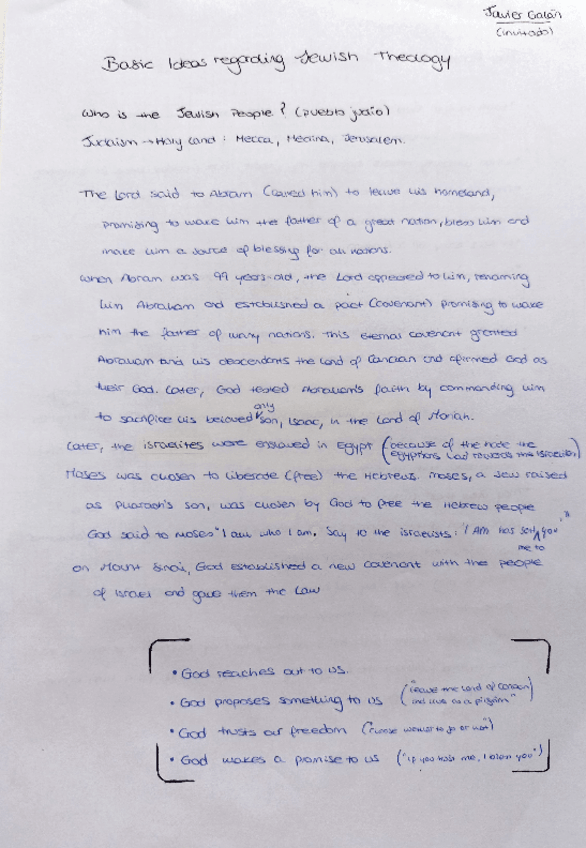 Javier Galán
(invitado)
Basic Ideas regarding Jewish Theology
Who is the Jewish People? (pueblo judío)
Judaism → Holy Land: Mecca, Medina, Jerusalem.
The Lord said to Abram (called him) to leave his homeland,
promising to make him the father of a great nation, bless him and
make him a source of blessing for all nations.
When Abram was 99 years-old, the Lord appeared to him, renaming
him Abraham and established a pact (covenant) promising to make
him the father of many nations. This eternal covenant granted
Abraham and his descendents the land of Canaan and afirmed God as
their God. Later, God tested Abraham's faith by commanding him
to sacrifice his beloved only son, Isaac, in the land of Moriah.
Later, the israelites were enslaved in Egypt (because of the hate the
egyptians had towards the israelites)
Moses was chosen to liberate (free) the Hebrews. Moses, a Jew raised
as pharaoh's son, was chosen by God to free the Hebrew people
God said to Moses "I am who I am. Say to the israelists: 'I AM has sent me to you'"
on Mount Sinai, God established a new covenant with the people
of Israel and gave them the Law
• God reaches out to us.
• God proposes something to us ("leave the land of Canaan
and live as a pilgrim")
• God trusts our freedom (" want to go or not")
• God makes a promise to us ("If you trust me, I bless you")